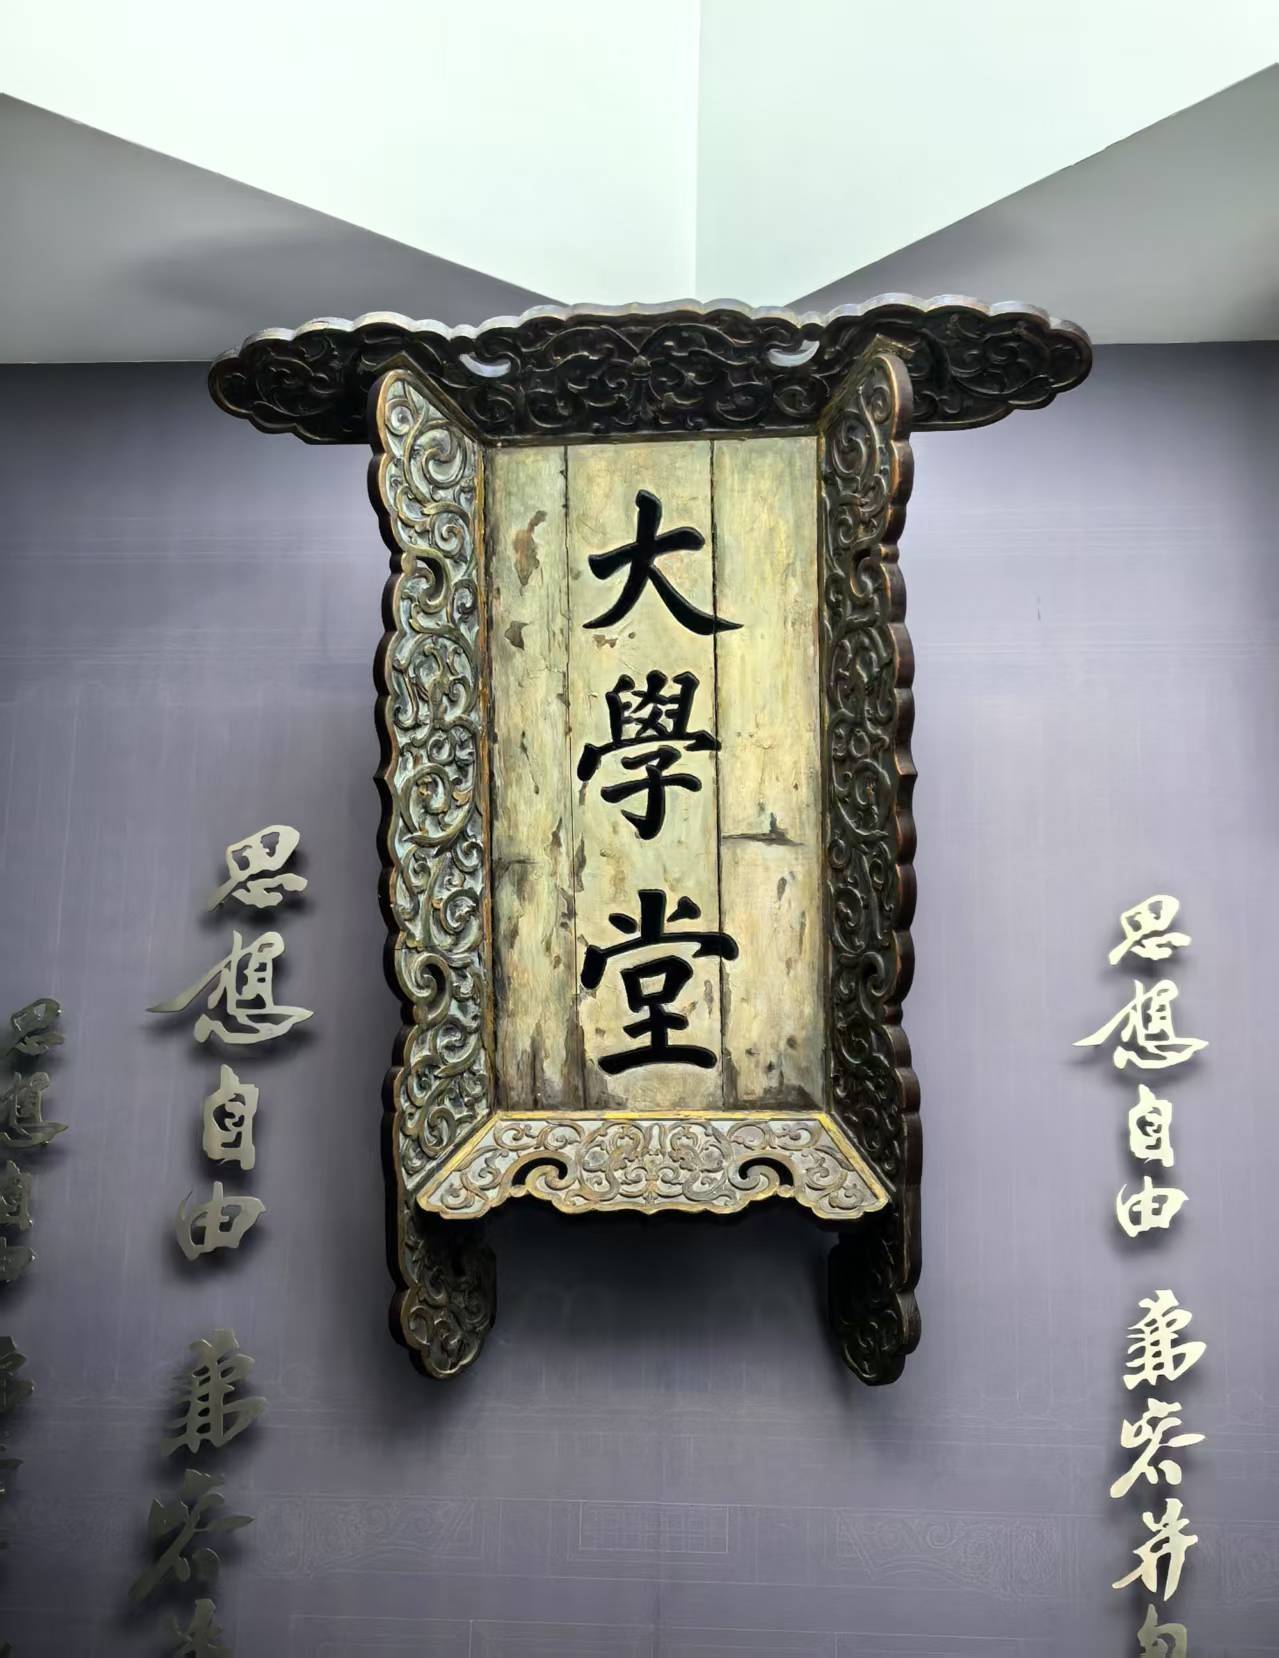 大學堂
思想自由
兼容并包
思想自由
兼容并
思想自由